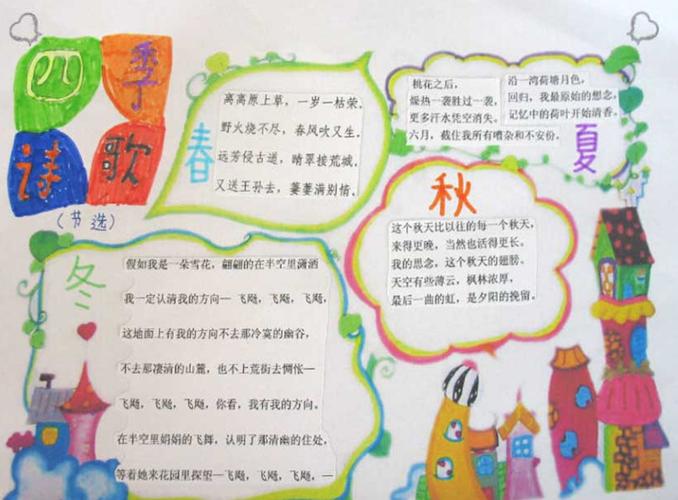 四季
诗歌
（节选）
春
离离原上草，一岁一枯荣。
野火烧不尽，春风吹又生。
远芳侵古道，晴翠接荒城。
又送王孙去，萋萋满别情。
夏
桃花之后，
燥热一袭胜过一袭，
更多汗水凭空消失。
六月，截住我所有嘈杂和不安份。
沿一湾荷塘月色，
回归，我最原始的想念，
记忆中的荷叶开始清香。
秋
这个秋天比以往的每一个秋天，
来得更晚，当然也活得更长。
我的思念，这个秋天的翅膀。
天空有些薄云，枫林浓厚，
最后一曲的虹，是夕阳的挽留。
冬
假如我是一朵雪花，翩翩的在半空里潇洒
我一定认清我的方向─ 飞飏，飞飏，飞飏，
这地面上有我的方向不去那冷寞的幽谷，
不去那凄清的山麓，也不上荒街去惆怅─
飞飏，飞飏，飞飏，你看，我有我的方向。
在半空里娟娟的飞舞，认明了那清幽的住处，
等着她来花园里探望─飞飏，飞飏，飞飏，─